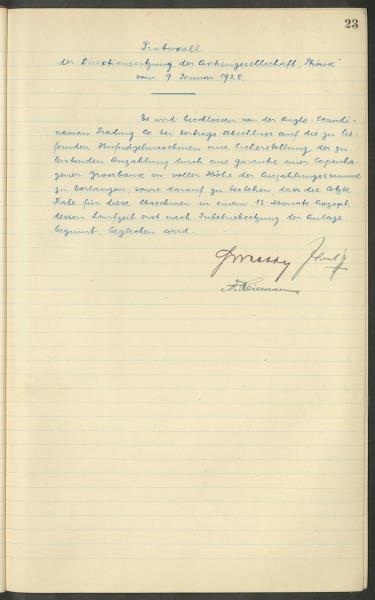 23
Protokoll
der Direktionssitzung der Aktiengesellschaft "Phönix"
vom 9 Januar 1928
Es wird beschlossen von der Anglo-Scandi-
navian Trading Co bei Vertrags abschluss auf die zu lie-
fernden Hanfprägelmaschinen eine Sicherstellung der zu
leistenden Anzahlung durch eine garantie einer Copenha-
gener Grossbank in voller Höhe der Anzahlungssumme
zu verlangen, sowie darauf zu bestehen, dass die letzte
Rate für diese Maschinen in einem 12 Monats Akzept
dessen Laufzeit erst nach Inbetriebsetzung der Anlage
beginnt, beglichen wird.